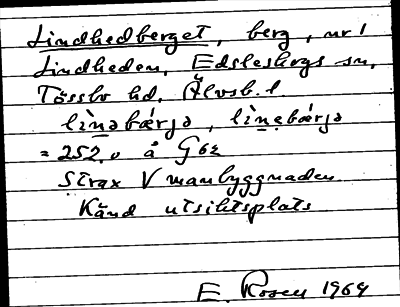 Lindhedberget, berg, nr 1
Lindheden, Edsleskogs sn,
Tössbo hd, Älvsb. l.
lìnəbærjə, lìnəbærjə
= 252.0 å Gbl
Strax V manbyggnaden
Känd utsiktsplats
E. Rosen 1964